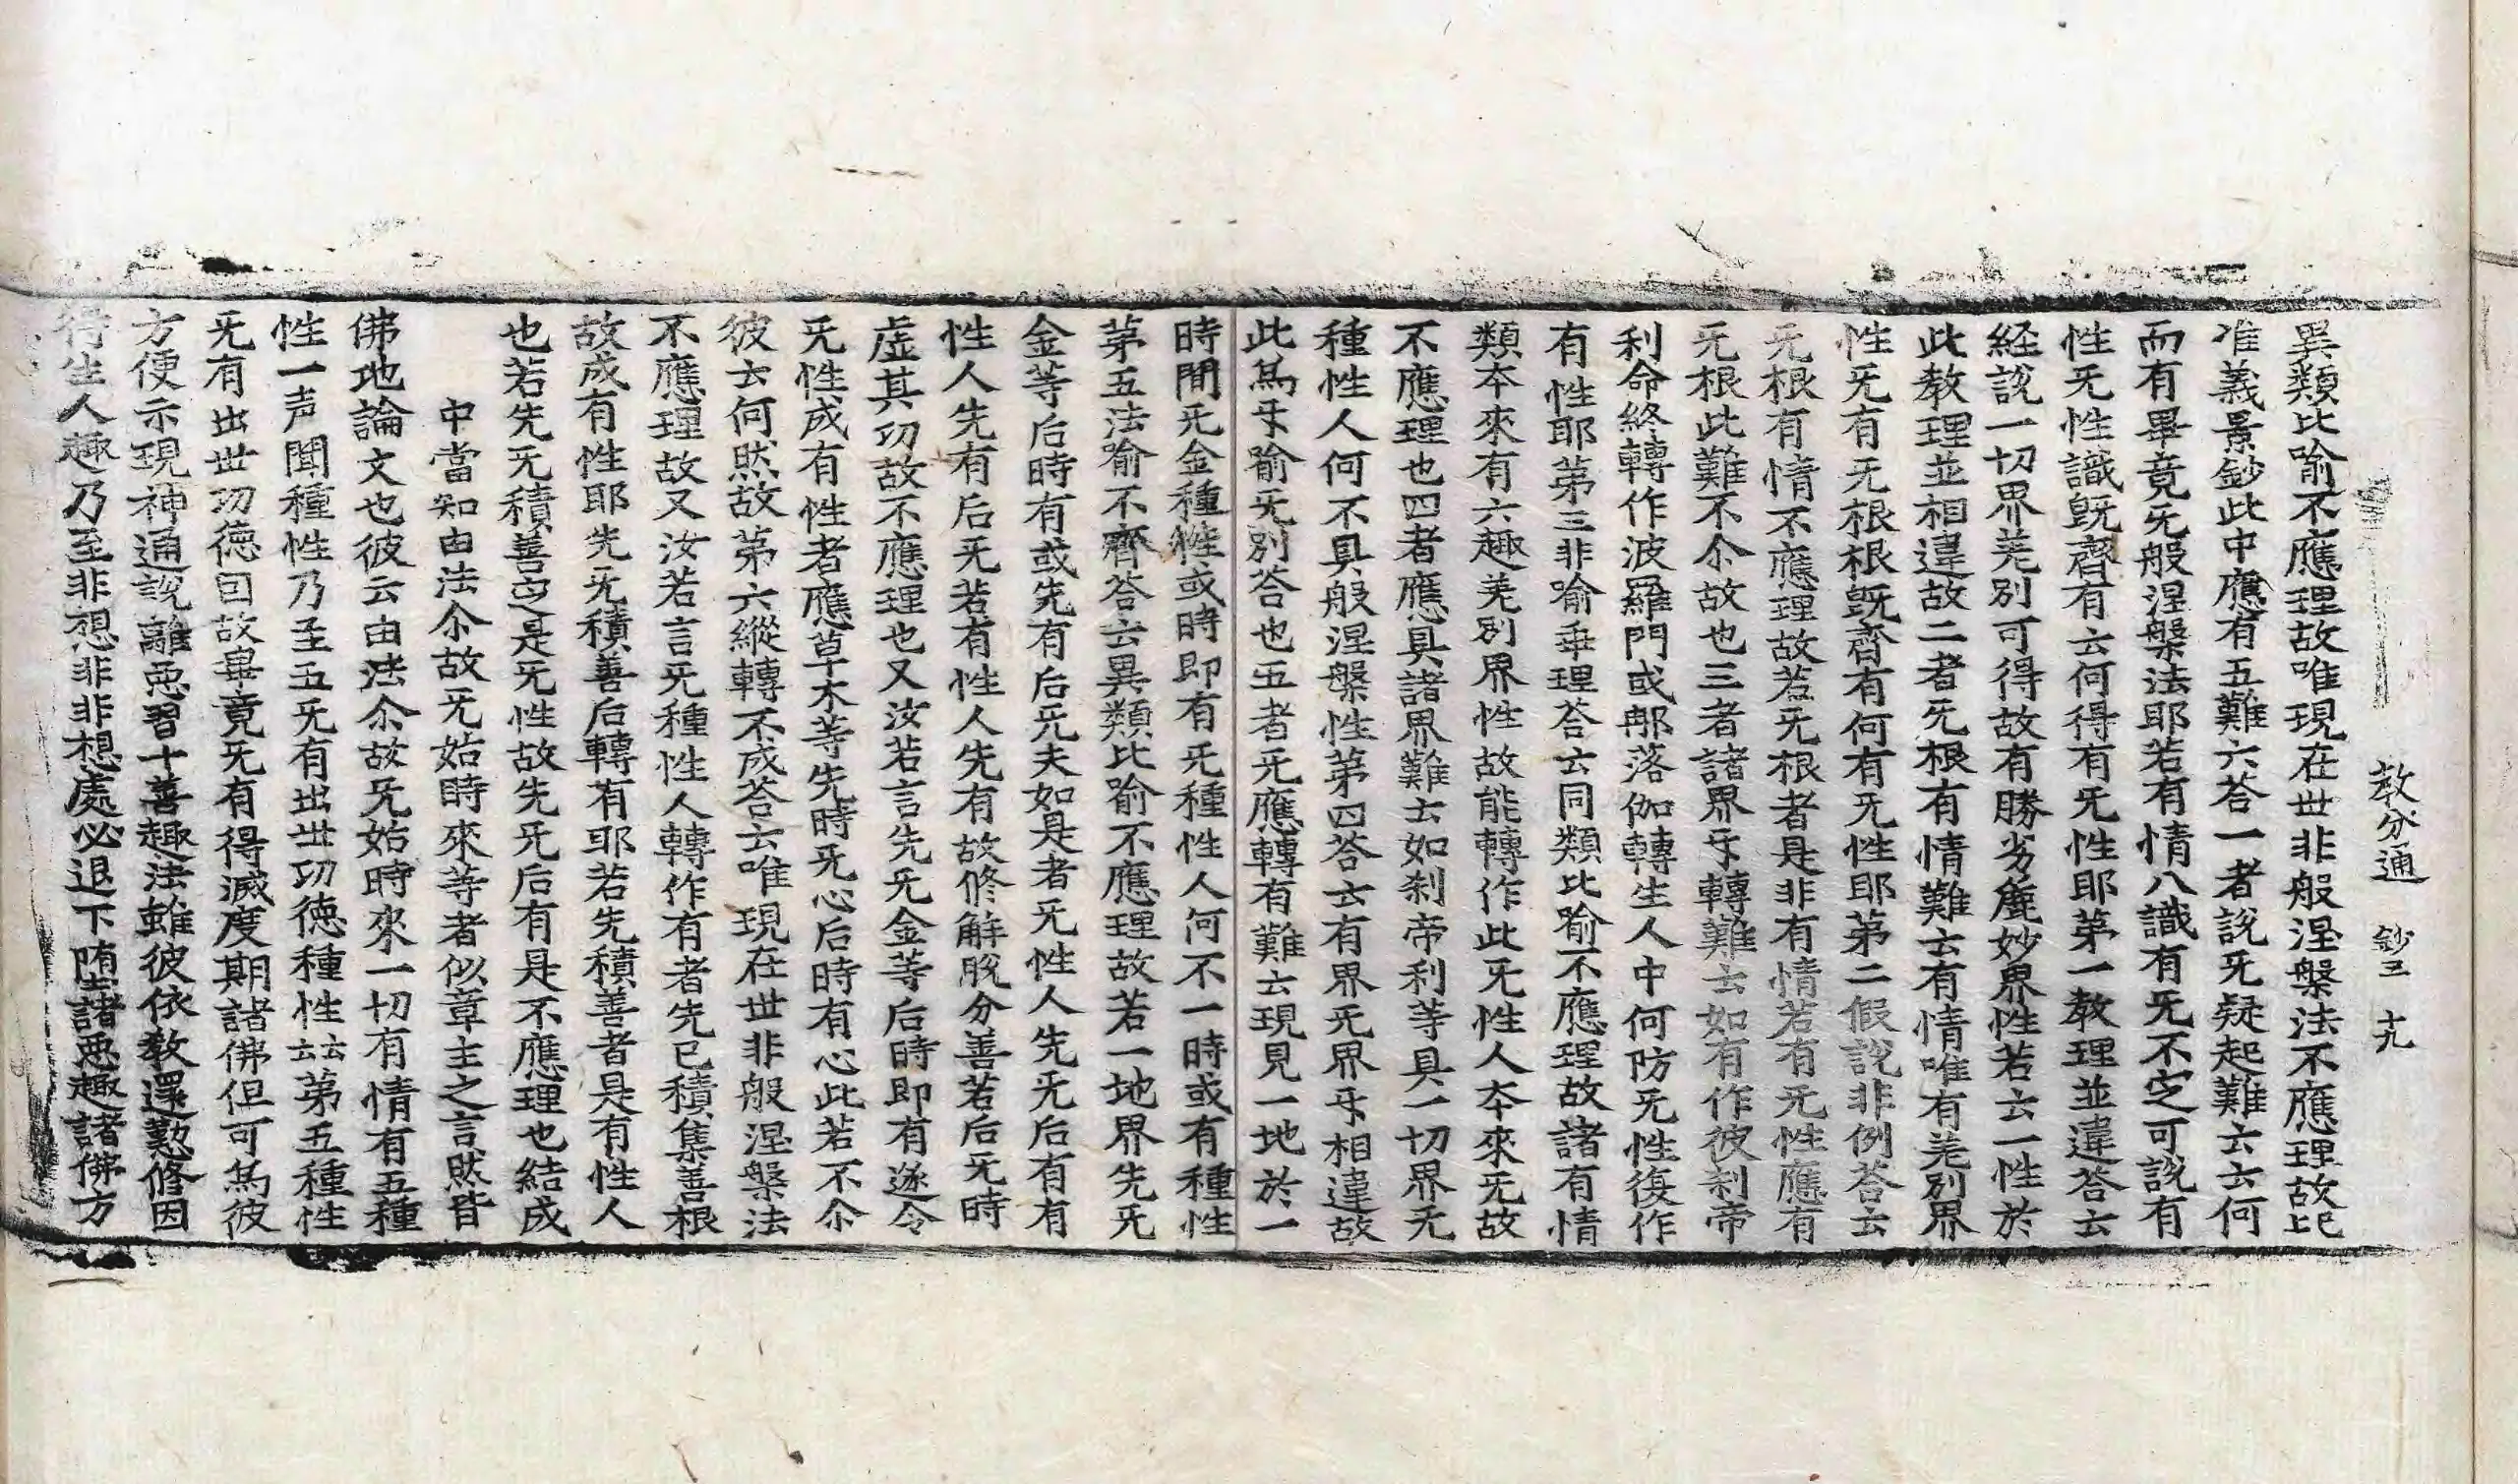 教分通 鈔三 十九
異類比喻不應理故唯現在世非般涅槃法不應理故比
准義景鈔此中應有五難六荅一者說旡疑起難云云何
而有畢竟旡般涅槃法耶若有情八識有旡不定可說有
性旡性識旣齊有云何得有旡性耶第一教理並違荅云
経說一切界差別可得故有勝劣麁妙界性若云一性於
此教理並相違故二者旡根有情難云有情唯有差別界
性旡有旡根根旣齊有何有旡性耶第二假說非例荅云
旡根有情不應理故若旡根者是非有情若有旡性應有
旡根此難不尒故也三者諸界㸦轉難云如有作彼刹帝
利命終轉作波羅門或那落伽轉生人中何防旡性復作
有性耶第三非喻乖理荅云同類比喻不應理故諸有情
類夲來有六趣差別界性故能轉作此旡性人夲來旡故
不應理也四者應具諸界難云如刹帝利等具一切界旡
種性人何不具般涅槃性第四荅云有界旡界㸦相違故
此爲㸦喻旡別荅也五者旡應轉有難云現見一地於一
時間旡金種性或時即有旡種性人何不一時或有種性
第五法喻不齊荅云異類比喻不應理故若一地界先旡
金等后時有或先有后旡夫如是者旡性人先旡后有有
性人先有后旡若有性人先有故修解脫分善若后旡時
虛其功故不應理也又汝若言先旡金等后時即有遂令
旡性成有性者應草木等先時旡心后時有心此若不尒
彼云何然故第六縱轉不成荅云唯現在世非般涅槃法
不應理故又汝若言旡種性人轉作有者先已積集善根
故成有性耶先旡積善后轉有耶若先積善者是有性人
也若先旡積善定是旡性故先旡后有是不應理也結成
中當知由法尒故旡始時來等者似章主之言然皆
佛地論文也彼云由法尒故旡始時來一切有情有五種
性一声聞種性乃至五旡有出世功德種性云云第五種性
旡有出世功德因故畢竟旡有得滅度期諸佛但可爲彼
方便示現神通說離惡習十善趣法雖彼依教還懃修因
得生人趣乃至非想非非想處必退下堕諸惡趣諸佛方